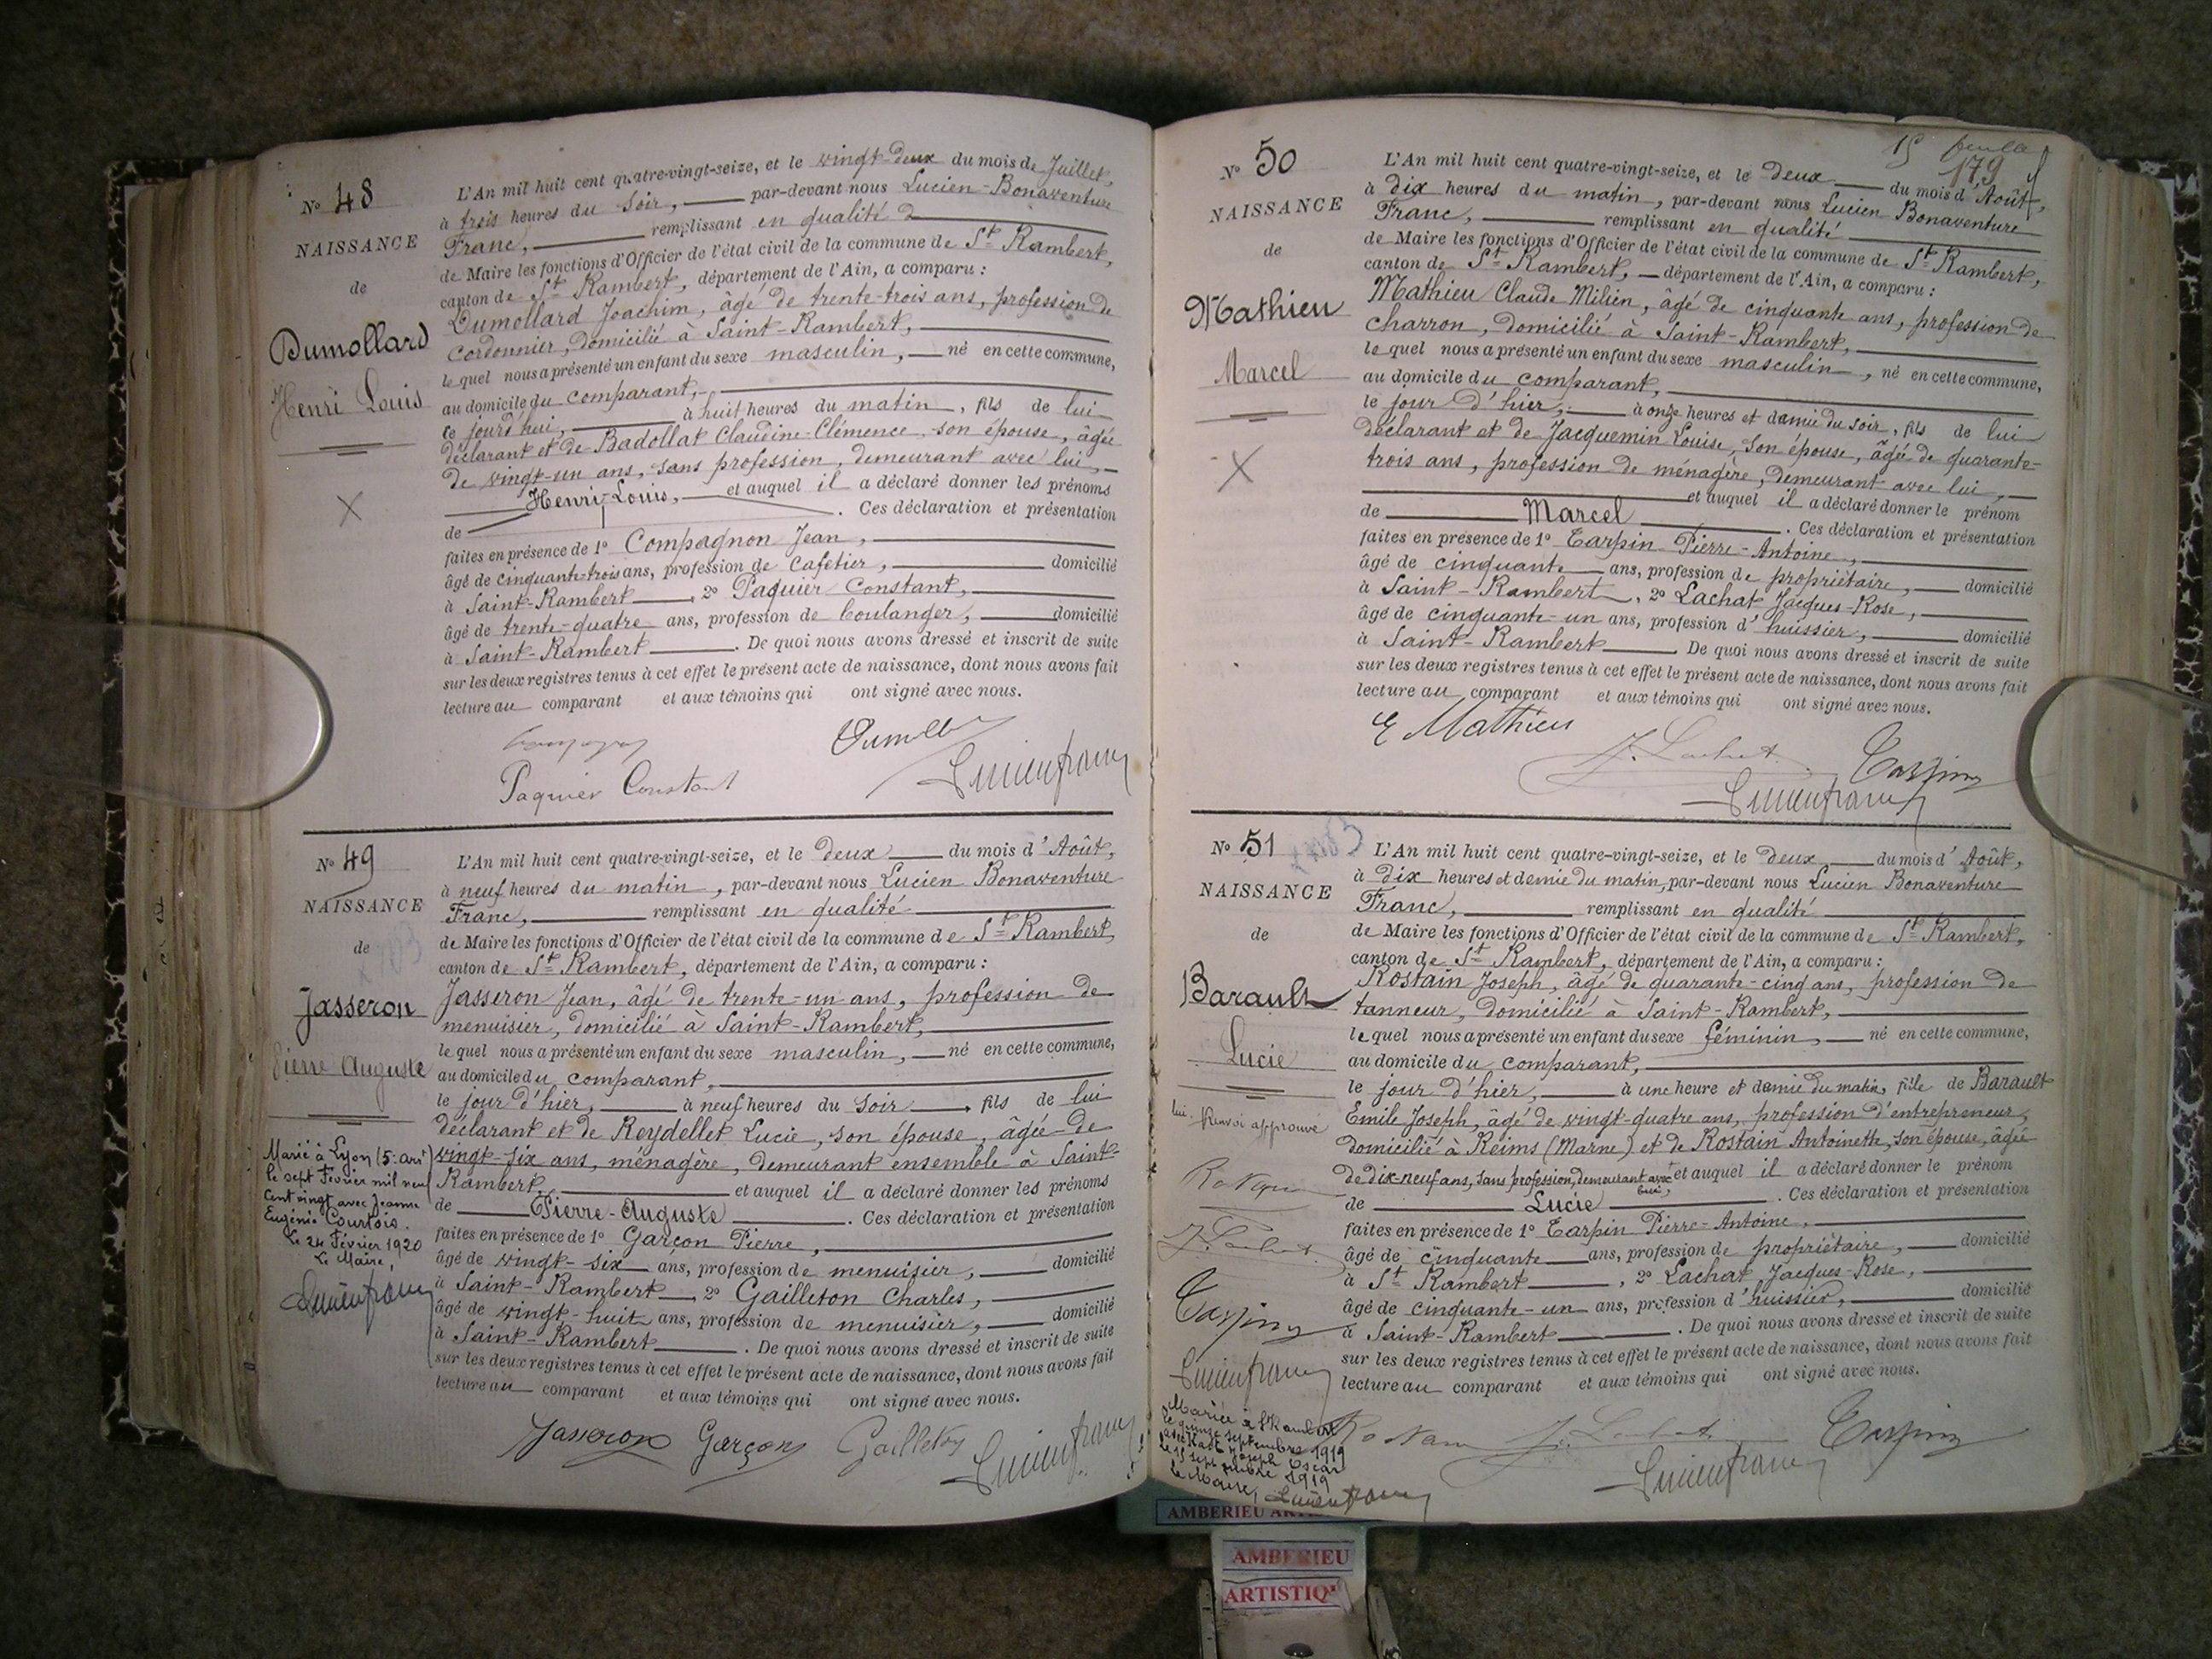 № 48
NAISSANCE
de
Dumollard
Henri Louis
L'An mil huit cent quatre-vingt-seize, et le vingt-deux du mois de Juillet,
à trois heures du soir, par-devant nous Lucien-Bonaventure
Franc, remplissant en qualité d
de Maire les fonctions d'Officier de l'état civil de la commune de St Rambert,
canton de St Rambert, département de l'Ain, a comparu :
Dumollard Joachim, âgé de trente-trois ans, profession de
cordonnier, domicilié à Saint-Rambert,
lequel nous a présenté un enfant du sexe masculin, né en cette commune,
au domicile du comparant,
ce jourd'hui, à huit heures du matin, fils de lui
déclarant et de Badollat Claudine-Clémence, son épouse, âgée
de vingt-un ans, sans profession, demeurant avec lui,
Henri-Louis, et auquel il a déclaré donner les prénoms
de . Ces déclaration et présentation
faites en présence de 1o Compagnon Jean,
âgé de cinquante-trois ans, profession de cafetier, domicilié
à Saint-Rambert, 2o Paquier Constant,
âgé de trente-quatre ans, profession de boulanger, domicilié
à Saint-Rambert. De quoi nous avons dressé et inscrit de suite
sur les deux registres tenus à cet effet le présent acte de naissance, dont nous avons fait
lecture au comparant et aux témoins qui ont signé avec nous.
Paquier Constant
Lucien franc
№ 49
NAISSANCE
de
Jasseron
Pierre Auguste
Marié à Lyon (5e arrt)
le sept Février mil neuf
cent vingt avec Jeanne
Eugénie Courtois.
Le 24 Février 1920
Le Maire,
Lucien franc
L'An mil huit cent quatre-vingt-seize, et le deux du mois d'Août,
à neuf heures du matin, par-devant nous Lucien Bonaventure
Franc, remplissant en qualité
de Maire les fonctions d'Officier de l'état civil de la commune de St Rambert,
canton de St Rambert, département de l'Ain, a comparu :
Jasseron Jean, âgé de trente-un ans, profession de
menuisier, domicilié à Saint-Rambert,
lequel nous a présenté un enfant du sexe masculin, né en cette commune,
au domicile du comparant,
le jour d'hier, à neuf heures du soir, fils de lui
déclarant et de Reydellet Lucie, son épouse, âgée de
vingt-six ans, ménagère, demeurant ensemble à Saint-
Rambert, et auquel il a déclaré donner les prénoms
de Pierre-Auguste. Ces déclaration et présentation
faites en présence de 1o Garçon Pierre,
âgé de vingt-six ans, profession de menuisier, domicilié
à Saint-Rambert, 2o Gailleton Charles,
âgé de vingt-huit ans, profession de menuisier, domicilié
à Saint-Rambert. De quoi nous avons dressé et inscrit de suite
sur les deux registres tenus à cet effet le présent acte de naissance, dont nous avons fait
lecture au comparant et aux témoins qui ont signé avec nous.
Jasseron Garçon Gailleton Lucien franc
179
№ 50
NAISSANCE
de
Mathieu
Marcel
L'An mil huit cent quatre-vingt-seize, et le deux du mois d'Août,
à dix heures du matin, par-devant nous Lucien Bonaventure
Franc, remplissant en qualité
de Maire les fonctions d'Officier de l'état civil de la commune de St Rambert,
canton de St Rambert, département de l'Ain, a comparu :
Mathieu Claude Milien, âgé de cinquante ans, profession de
charron, domicilié à Saint-Rambert,
lequel nous a présenté un enfant du sexe masculin, né en cette commune,
au domicile du comparant,
le jour d'hier, à onze heures et demie du soir, fils de lui
déclarant et de Jacquemin Louise, son épouse, âgée de quarante-
trois ans, profession de ménagère, demeurant avec lui,
et auquel il a déclaré donner le prénom
de Marcel. Ces déclaration et présentation
faites en présence de 1o Tarpin Pierre-Antoine,
âgé de cinquante ans, profession de propriétaire, domicilié
à Saint-Rambert, 2o Lachat Jacques-Rose,
âgé de cinquante-un ans, profession d'huissier, domicilié
à Saint-Rambert. De quoi nous avons dressé et inscrit de suite
sur les deux registres tenus à cet effet le présent acte de naissance, dont nous avons fait
lecture au comparant et aux témoins qui ont signé avec nous.
Mathieu
J. Lachat Tarpin
Lucien franc
№ 51
NAISSANCE
de
Barault
Lucie
lui.
Renvoi approuvé
Rostain
J. Lachat
Tarpin
Lucien franc
Mariée à St Rambert
le quinze septembre 1919
Joseph Oscar
Le 15 septembre 1919
Le Maire, Lucien franc
L'An mil huit cent quatre-vingt-seize, et le deux du mois d'Août,
à dix heures et demie du matin, par-devant nous Lucien Bonaventure
Franc, remplissant en qualité
de Maire les fonctions d'Officier de l'état civil de la commune de St Rambert,
canton de St Rambert, département de l'Ain, a comparu :
Rostain Joseph, âgé de quarante-cinq ans, profession de
tanneur, domicilié à Saint-Rambert,
lequel nous a présenté un enfant du sexe féminin, né en cette commune,
au domicile du comparant,
le jour d'hier, à une heure et demie du matin, fille de Barault
Emile Joseph, âgé de vingt-quatre ans, profession d'entrepreneur,
domicilié à Reims (Marne) et de Rostain Antoinette, son épouse, âgée
de dix-neuf ans, sans profession, demeurant avec lui, et auquel il a déclaré donner le prénom
de Lucie. Ces déclaration et présentation
faites en présence de 1o Tarpin Pierre-Antoine,
âgé de cinquante ans, profession de propriétaire, domicilié
à St Rambert, 2o Lachat Jacques-Rose,
âgé de cinquante-un ans, profession d'huissier, domicilié
à Saint-Rambert. De quoi nous avons dressé et inscrit de suite
sur les deux registres tenus à cet effet le présent acte de naissance, dont nous avons fait
lecture au comparant et aux témoins qui ont signé avec nous.
Rostain J. Lachat Tarpin
Lucien franc
AMBERIEU
AMBERIEU
ARTISTIQ